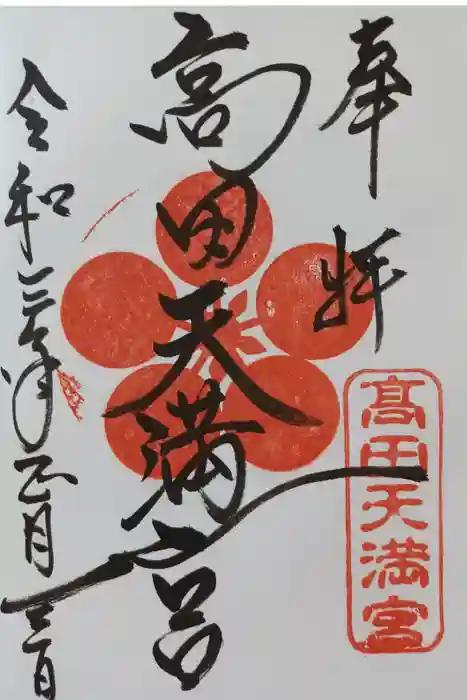 奉拝
髙田天満宮
高田天満宮
令和三年正月三日